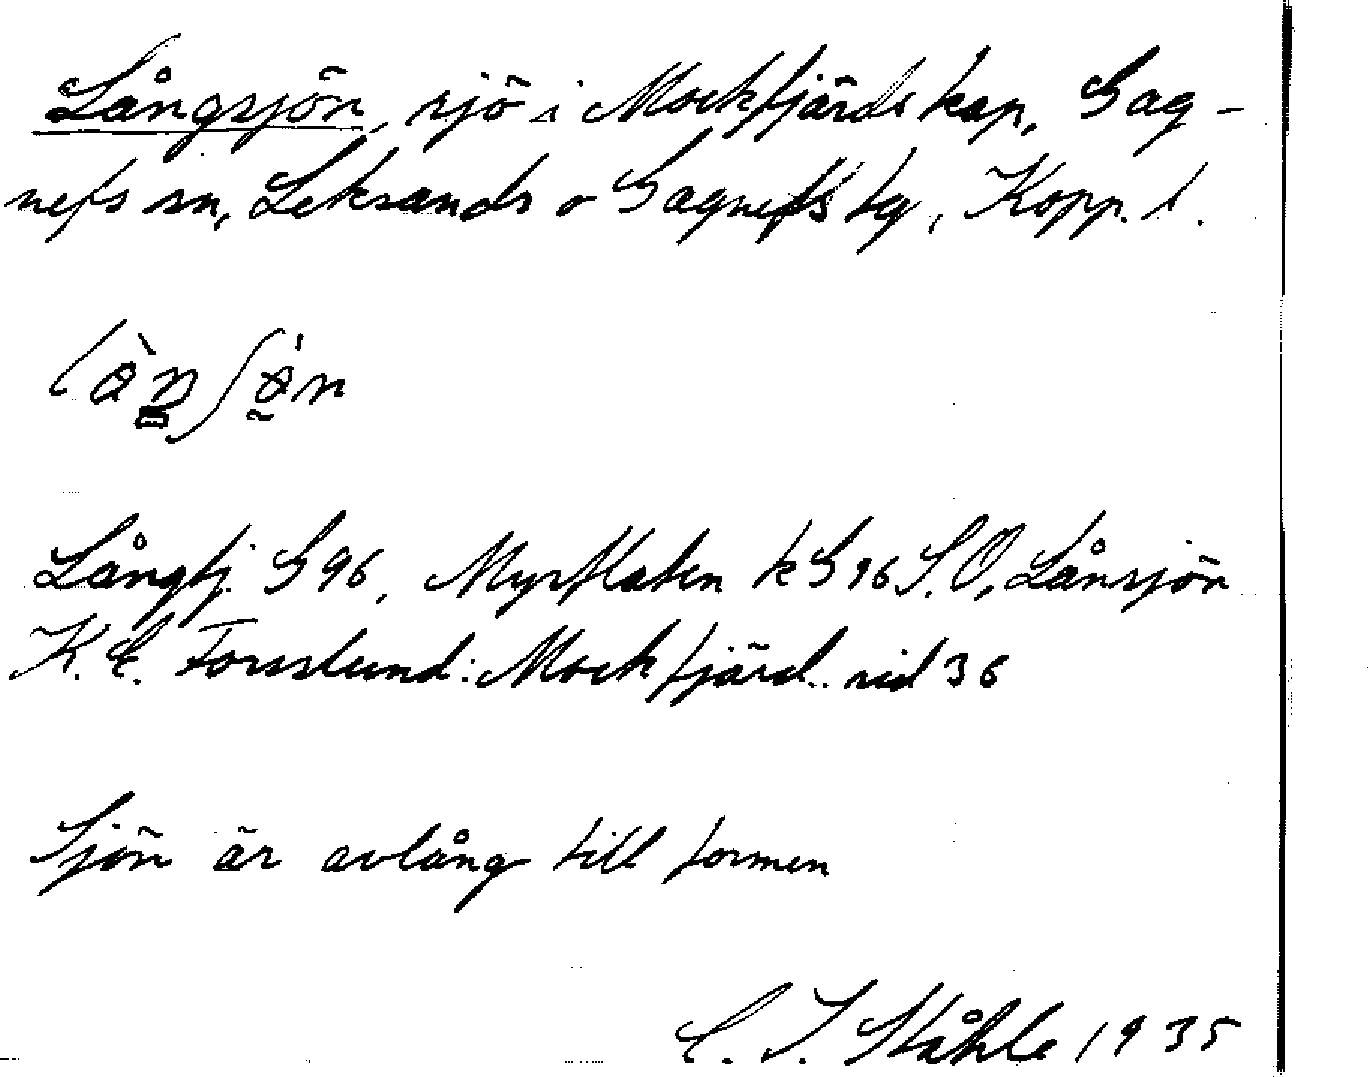 Långsjön, sjö i Mockfjärds kap, Gag-
nefs sn, Leksands o Gagnefs tg, Kopp. l.
Långtj. G96, Myrflaten k G96 S.O, Långsjön
K. E. Forsslund: Mockfjärd.. sid 36
Sjön är avlång till formen
C. I. Ståhle 1935